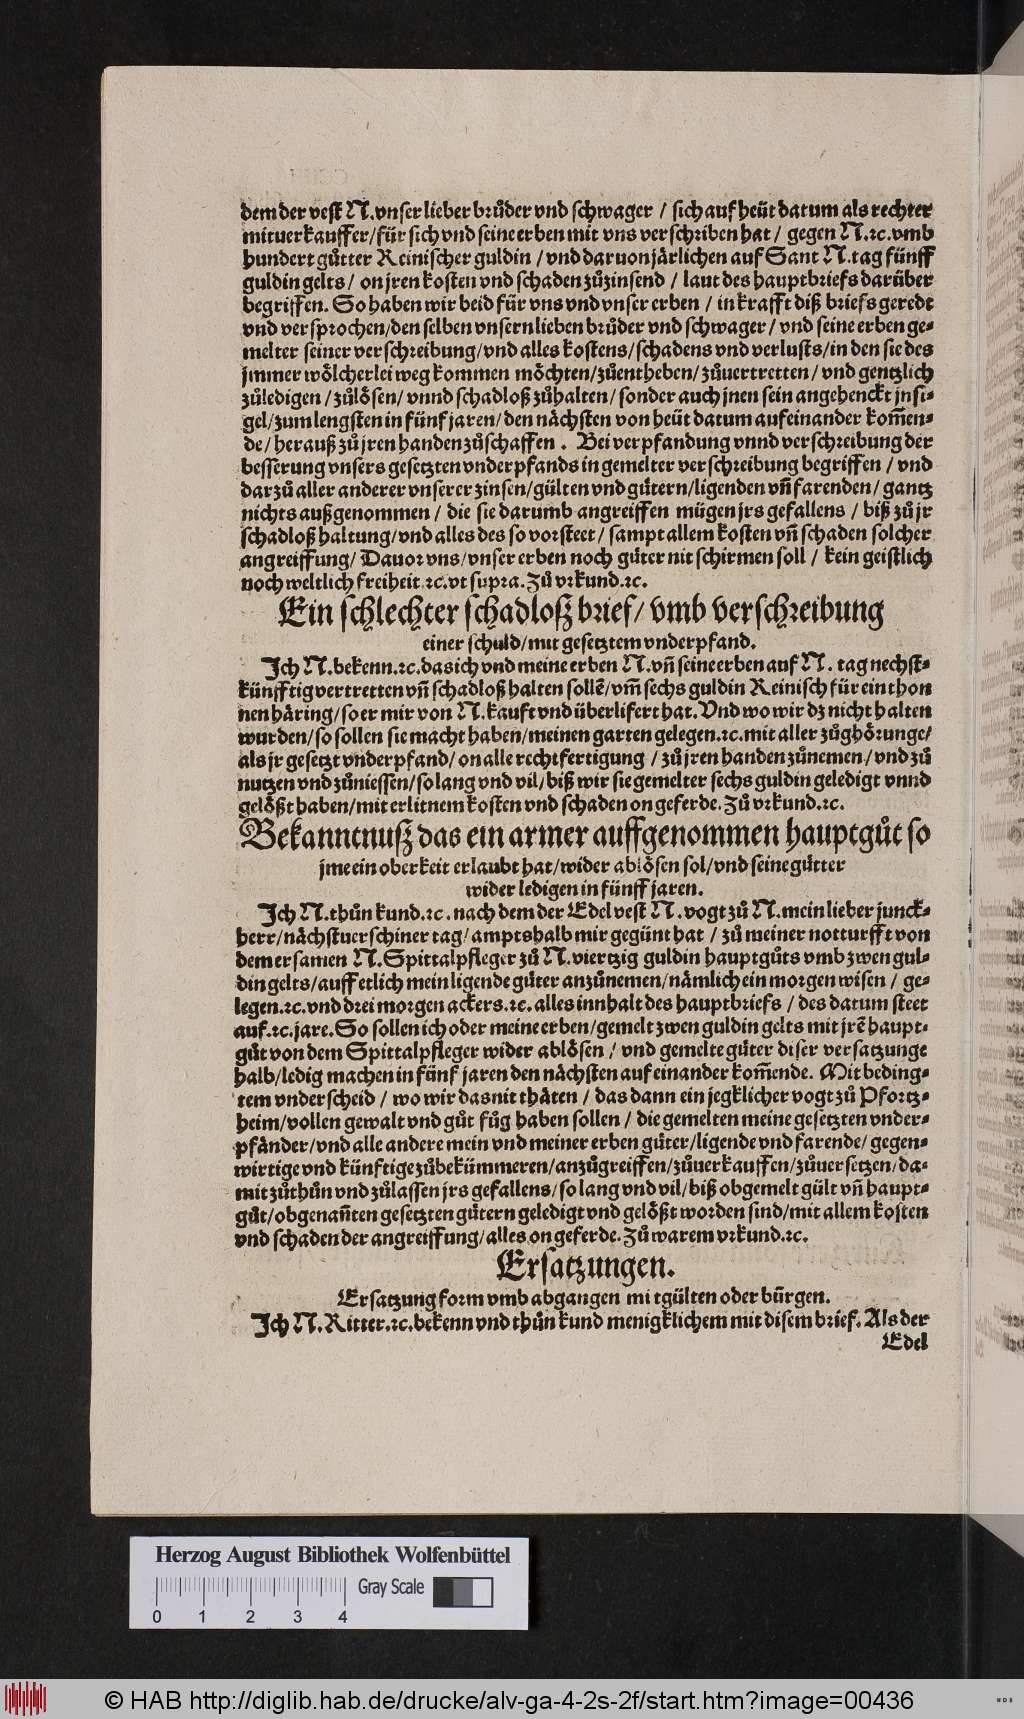 dem der vest N. vnser lieber brůder vnd schwager / sich auf heüt datum als rechter
mituerkauffer/für sich vnd seine erben mit vns verschriben hat / gegen N.ꝛc.vmb
hundert gůtter Reinischer guldin / vnd daruon järlichen auf Sant N.tag fünff
guldin gelts / on jren kosten vnd schaden zůzinsend / laut des hauptbriefs darüber
begriffen. So haben wir beid für vns vnd vnser erben / in krafft diß briefs geredt
vnd versprochen/den selben vnsern lieben brůder vnd schwager / vnd seine erben ge-
melter seiner verschreibung/vnd alles kostens/schadens vnd verlusts/in den sie des
jmmer wölcherlei weg kommen möchten/zůentheben/zůuertretten / vnd gentzlich
zůledigen / zůlösen/ vnnd schadloß zůhalten/ sonder auch jnen sein angehenckt jnsi-
gel/zum lengsten in fünf jaren/den nächsten von heüt datum aufeinander kom̃en-
de/ herauß zů jren handen zůschaffen . Bei verpfandung vnnd verschreibung der
besserung vnsers gesetzten vnderpfands in gemelter verschreibung begriffen / vnd
darzů aller anderer vnserer zinsen/gülten vnd gütern/ligenden vñ farenden/ gantz
nichts außgenommen / die sie darumb angreiffen mügen jrs gefallens / biß zů jr
schadloß haltung/vnd alles des so vorsteet / sampt allem kosten vñ schaden solcher
angreiffung/ Dauor vns/vnser erben noch güter nit schirmen soll / kein geistlich
noch weltlich freiheit ꝛc.vt supra. Zů vrkund.ꝛc.
Ein schlechter schadloß brief/ vmb verschreibung
einer schuld/mit gesetztem vnderpfand.
Ich N.bekenn.ꝛc.das ich vnd meine erben N.vñ seine erben auf N. tag nechst-
künfftig vertretten vñ schadloß halten sollẽ/vm̃ sechs guldin Reinisch für ein thon
nen häring/so er mir von N.kauft vnd überlifert hat. Vnd wo wir dz nicht halten
wurden/so sollen sie macht haben/meinen garten gelegen.ꝛc.mit aller zůghörunge/
als jr gesetzt vnderpfand/on alle rechtfertigung / zů jren handen zůnemen/vnd zů
nutzen vnd zůniessen/so lang vnd vil/biß wir sie gemelter sechs guldin geledigt vnnd
gelößt haben/mit erlitnem kosten vnd schaden on geferde. Zů vrkund.ꝛc.
Bekanntnuß das ein armer auffgenommen hauptgůt so
jme ein oberkeit erlaubt hat/wider ablösen sol/vnd seine gůtter
wider ledigen in fünff jaren.
Ich N.thůn kund.ꝛc.nach dem der Edel vest N.vogt zů N.mein lieber junck-
herr/nächstuerschiner tag/ amptshalb mir gegünt hat / zů meiner notturfft von
dem ersamen N.Spittalpfleger zů N.viertzig guldin hauptgůts vmb zwen gul-
din gelts/auff etlich mein ligende güter anzůnemen/nämlich ein morgen wisen / ge-
legen.ꝛc.vnd drei morgen ackers.ꝛc.alles innhalt des hauptbriefs / des datum steet
auf.ꝛc.jare. So sollen ich oder meine erben/gemelt zwen guldin gelts mit jrẽ haupt-
gůt von dem Spittalpfleger wider ablösen / vnd gemelte güter diser versatzunge
halb/ledig machen in fünf jaren den nächsten auf einander kom̃ende. Mit beding-
tem vnderscheid / wo wir das nit thäten / das dann ein jegklicher vogt zů Pfortz-
heim/vollen gewalt vnd gůt fůg haben sollen / die gemelten meine gesetzten vnder-
pfänder/vnd alle andere mein vnd meiner erben güter/ligende vnd farende/ gegen-
wirtige vnd künftige zůbekümmeren/anzůgreiffen/zůuerkauffen/zůuersetzen/da-
mit zůthůn vnd zůlassen jrs gefallens/so lang vnd vil/biß obgemelt gült vñ haupt-
gůt/obgenañten gesetzten gütern geledigt vnd gelößt worden sind/mit allem kosten
vnd schaden der angreiffung/alles on geferde. Zů warem vrkund.ꝛc.
Ersatzungen.
Ersatzung form vmb abgangen mitgülten oder bürgen.
Ich N.Ritter.ꝛc.bekenn vnd thůn kund menigklichem mit disem brief. Als der
Edel
Herzog August Bibliothek Wolfenbüttel
Gray Scale
0 1 2 3 4
© HAB http://diglib.hab.de/drucke/alv-ga-4-2s-2f/start.htm?image=00436